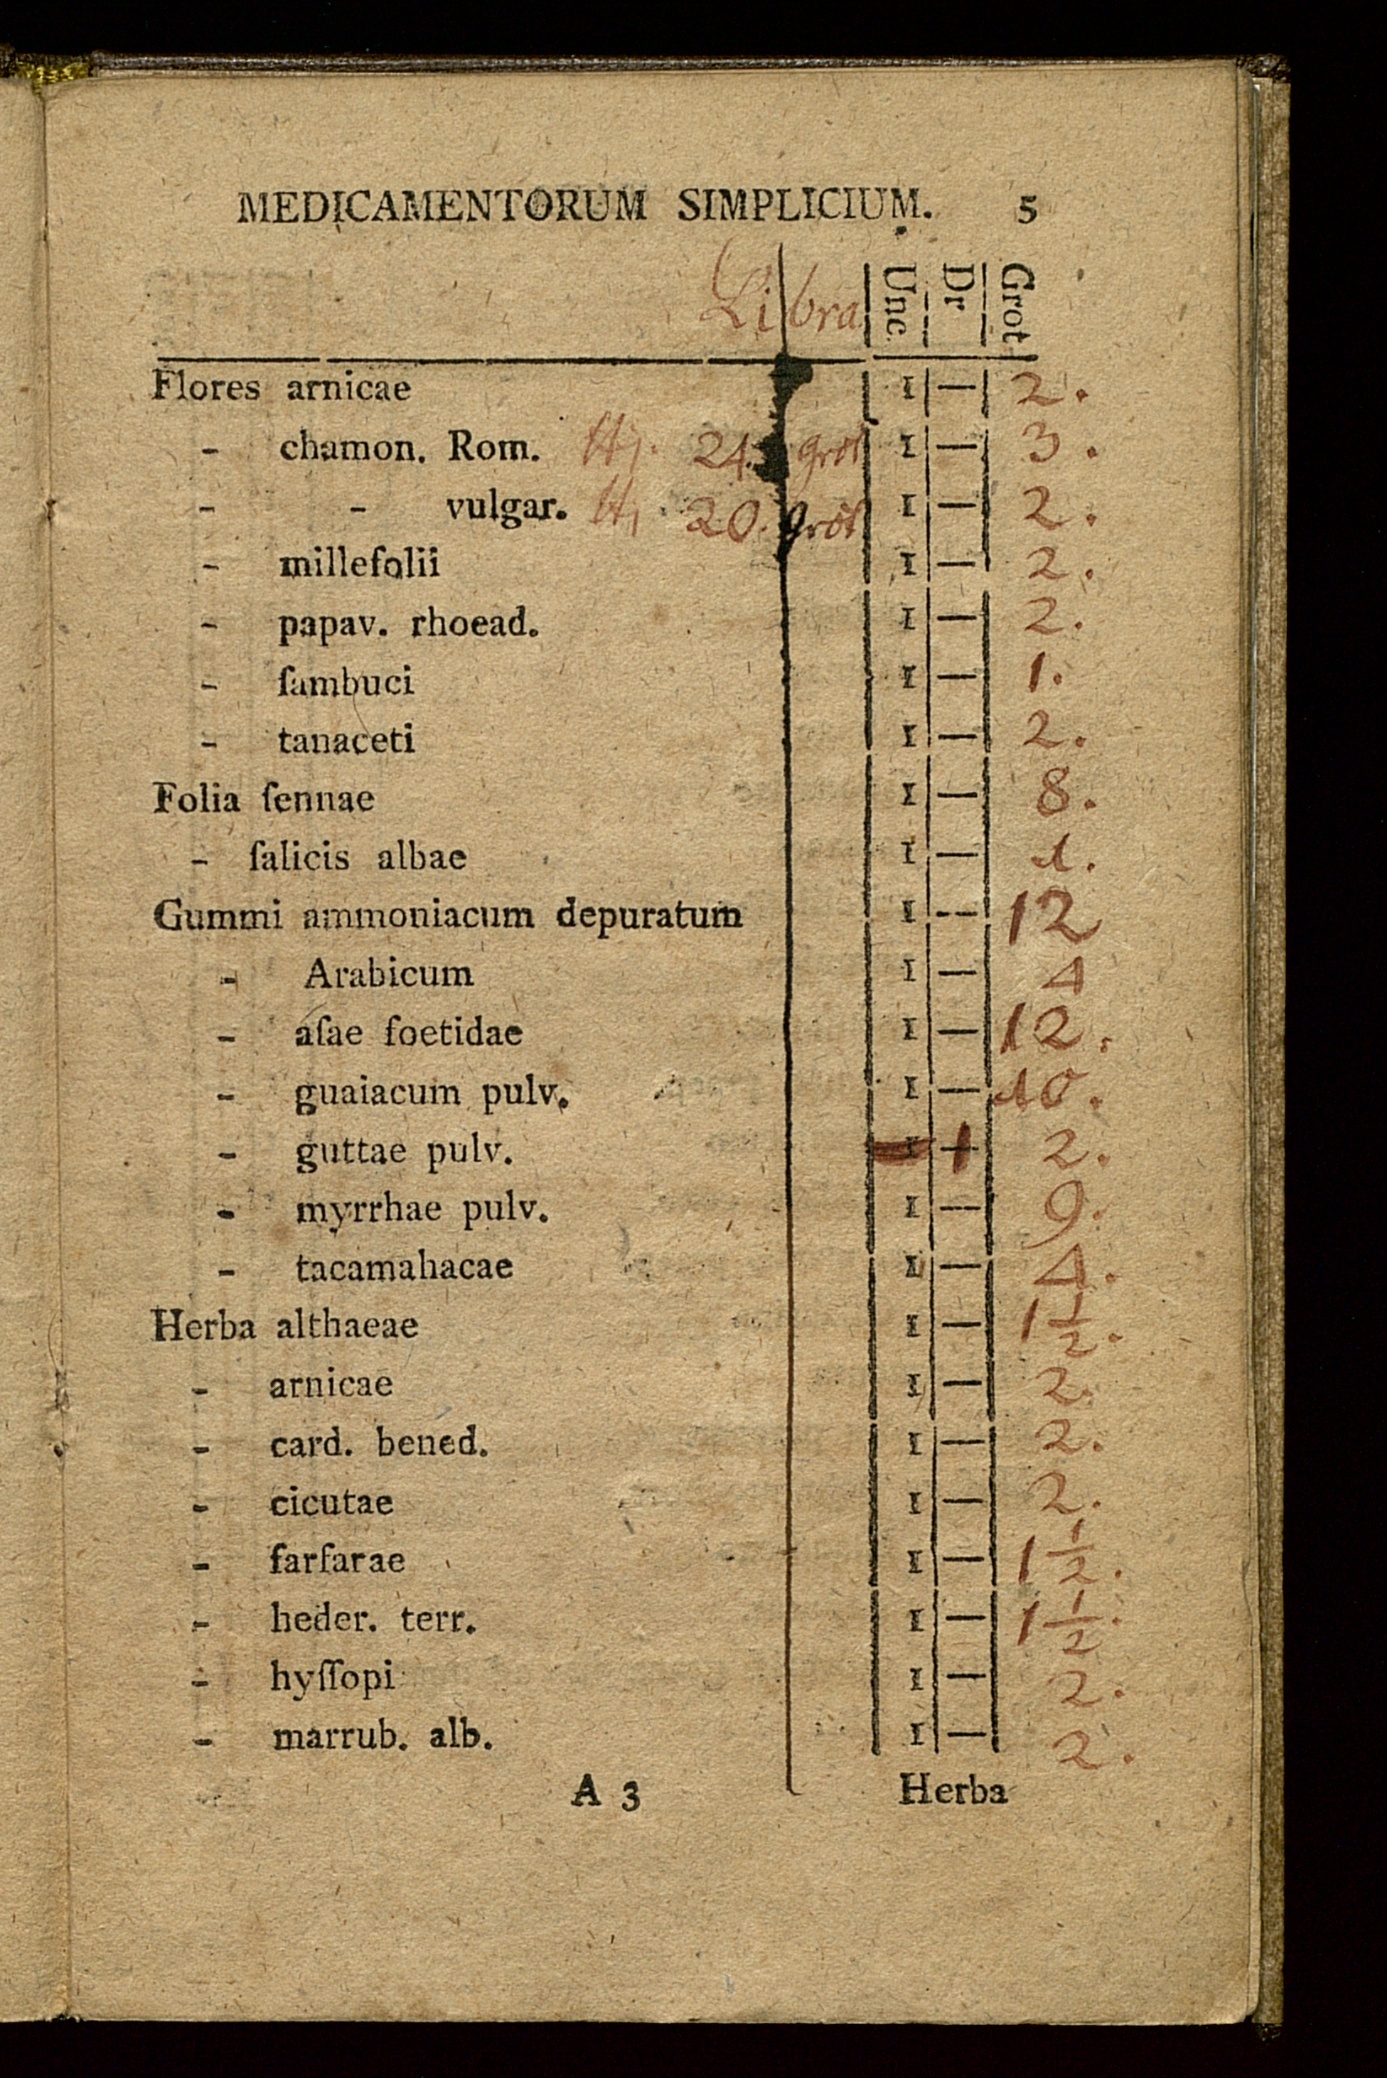 MEDICAMENTORUM SIMPLICIUM. 5
Libra Unc. Dr Grot.
Flores arnicae I — 2.
- chamon. Rom. 24. grot I — 3.
- - vulgar. 20. grot I — 2.
- millefolii I — 2.
- papav. rhoead. I — 2.
- ſambuci I — 1.
- tanaceti I — 2.
Folia ſennae I — 8.
- ſalicis albae I — 1.
Gummi ammoniacum depuratum I — 12
- Arabicum I — 4
- aſae foetidae I — 12.
- guaiacum pulv. I — 10.
- guttae pulv. I 1 2.
- myrrhae pulv. I — 9.
- tacamahacae I — 4.
Herba althaeae I — 1½.
- arnicae I — 2.
- card. bened. I — 2.
- cicutae I — 2.
- farfarae I — 1½.
- heder. terr. I — 1½.
- hyſſopi I — 2.
- marrub. alb. I — 2.
A 3 Herba